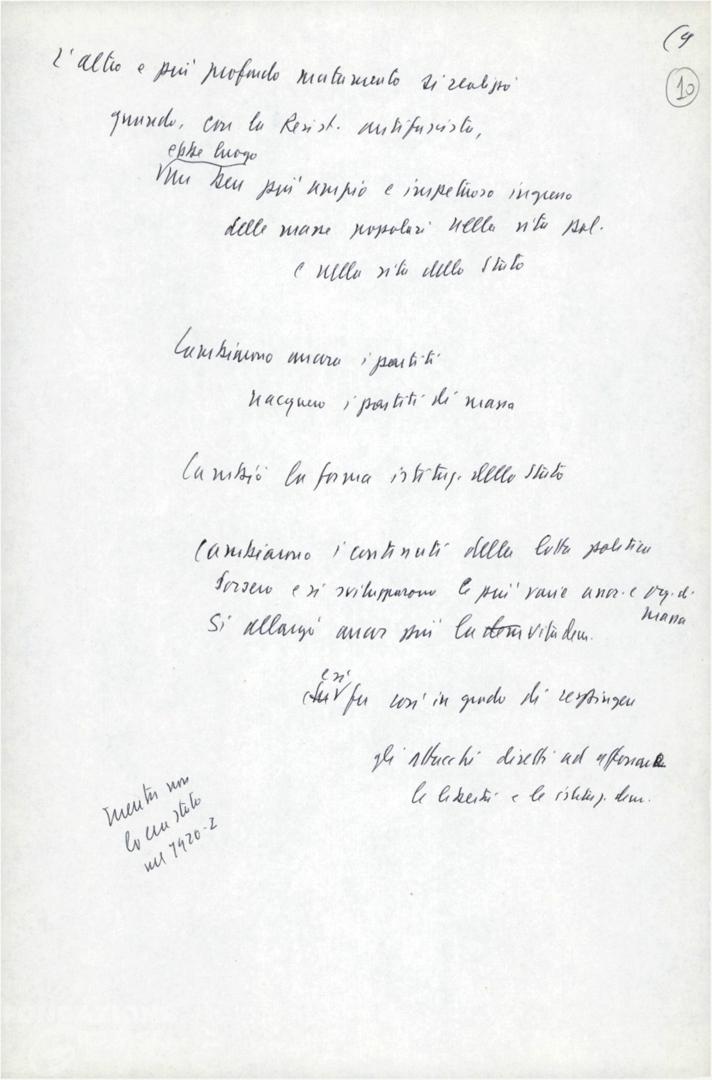 (9
10
L'altro e più profondo mutamento si realizzò
quando, con la Resist. antifascista,
ebbe luogo
un ben più ampio e impetuoso ingresso
delle masse popolari nella vita pol.
e nella vita dello Stato
Cambiarono ancora i partiti
nacquero i partiti di massa
Cambiò la forma istituz. dello Stato
Cambiarono i contenuti della lotta politica
Sorsero e si svilupparono le più varie assoc. e org. di
massa
Si allargò ancor più la dem vita dem.
e si
fu così in grado di respingere
gli attacchi diretti ad affossare
le libertà e le istituz. dem.
mentre non
lo era stato
nel 1920-2